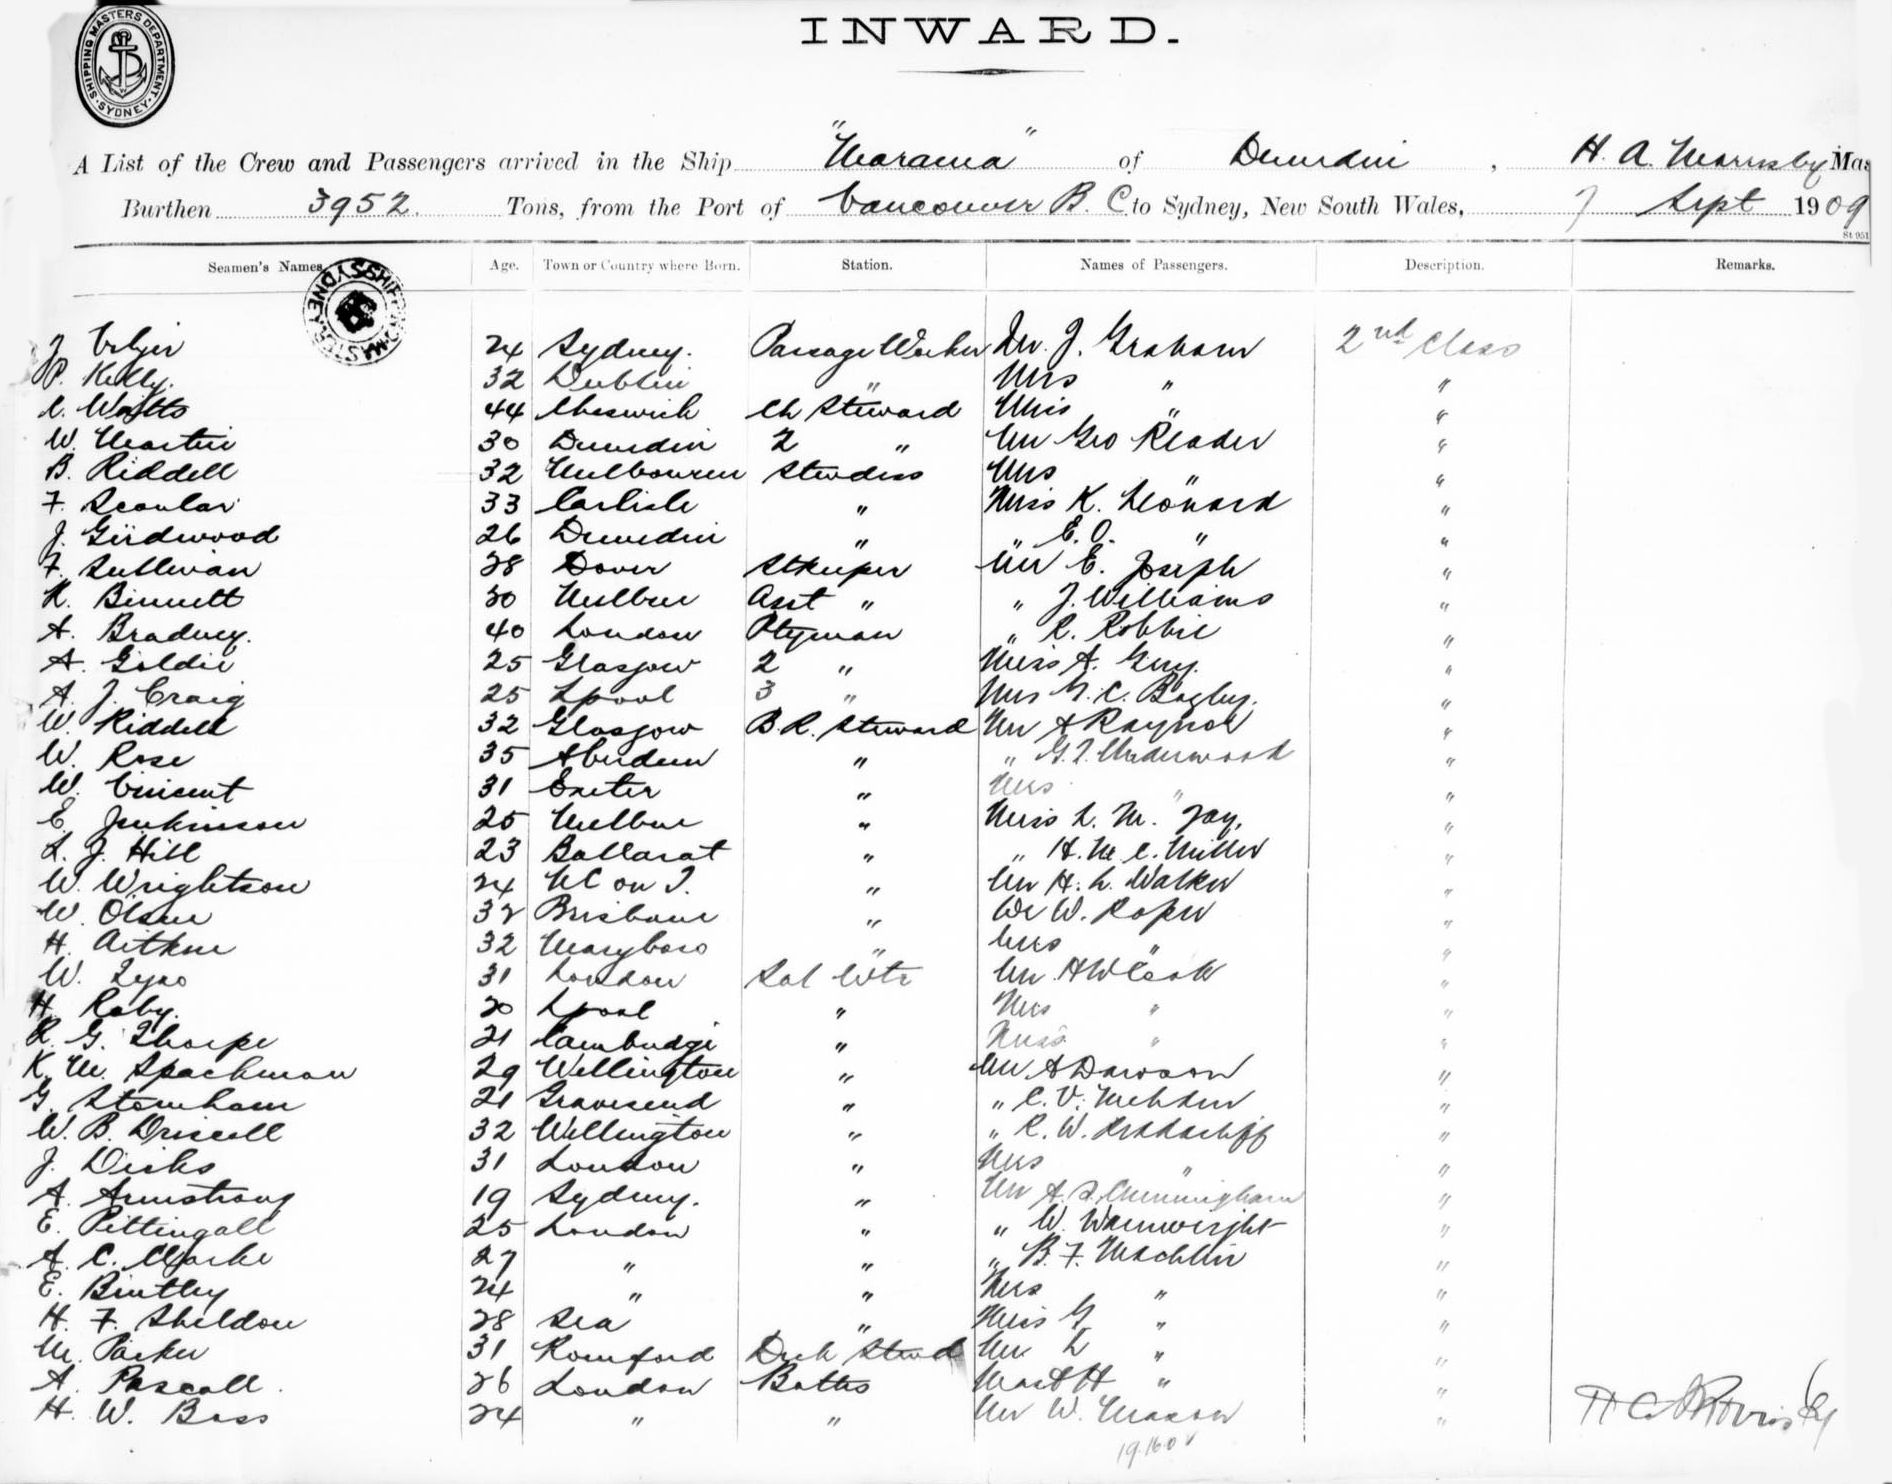 SHIPPING MASTERS DEPARTMENT. SYDNEY
INWARD.
A List of the Crew and Passengers arrived in the Ship "Marama" of Dunedin, H. A. Mornsby Mas
Burthen 3952. Tons, from the Port of Vancouver B. C to Sydney, New South Wales, 7 Sept 1909
St 951
Seamen's Names Age. Town or Country where Born. Station. Names of Passengers. Description. Remarks.
J 24 Sydney. Passage Worker Mr. J. Graham 2nd Class
P. Kelly. 32 Dublin " Mrs " "
C. Watts 44 Cheswick Ch Steward Miss " "
W. Martin 30 Dunedin 2 " Mr Geo Reader "
B. Riddell 32 Melbourne Stewdess Mrs " "
F. Scoular 33 Carlisle " Miss K. Leonard "
J. Girdwood 26 Dunedin " " E. O. " "
F. Sullivan 28 Dover Stkeeper Mr E. Joseph "
K. Bennett 30 Melbne Asst " " J. Williams "
A. Bradney. 40 London Ptyman " R. Robbie "
A. Goldie 25 Glasgow 2 " Miss A. Guy. "
A. J. Craig 25 Lpool 3 " Mrs C. Bagley. "
W. Riddell 32 Glasgow B.R. Steward Mr A Raynor "
W. Rose 35 Aberdeen " " G. T. Underwood "
W. Vincent 31 Exeter " Mrs " "
E. Jenkinson 25 Melbne " Miss L. M. Jay. "
L. J. Hill 23 Ballarat " " H. M. C. Miller "
W. Wrightson 24 NC on T. " Mr H. L. Walker "
W. Olsen 32 Brisbane " W. Roper "
H. Aitken 32 Maryboro " Mrs " "
W. 31 London Sal Wtr Mr A W Cook "
H. Raby. 20 Lpool " Mrs " "
R. G. Thorpe 21 Cambridge " Miss " "
K. M. Spackman 29 Wellington " Mr A Dawson "
G. Stoneham 21 Gravesend " " C. V. Mehden "
W. B. Driscoll 32 Wellington " " R. W. "
J. Dicks 31 London " Mrs " "
A. Armstrong 19 Sydney. " Mr A. J. Cunningham "
E. Pittingall 25 London " " W. Wainwright "
A. C. Clarke 27 " " " B. F. Machlin "
E. Bentley 24 " " Mrs " "
H. F. Sheldon 28 Sea " Miss G " "
M. Parker 31 Romford Deck Stewd Mr L " "
A. Pascall. 26 London Baths Mast H " "
H. W. Bass 24 " " Mr W. Maxon "
19.16.0